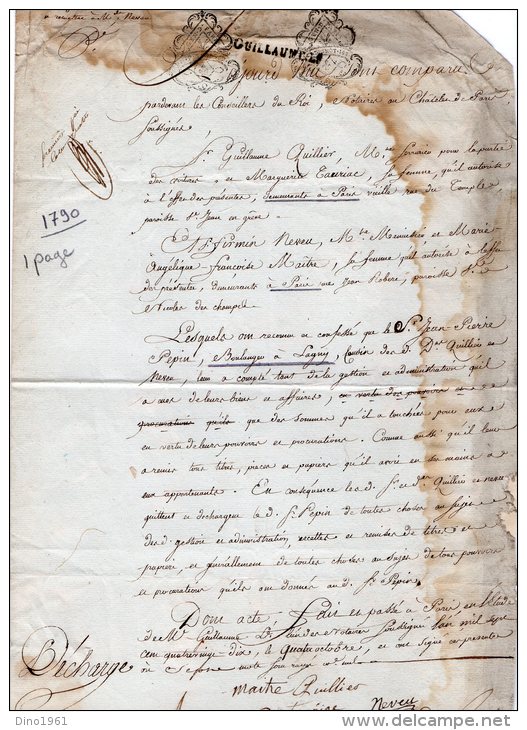 GUILLAUME
Aujourd'hui sont comparu
pardevant les Conseillers du Roi, Notaires au Chatelet de Paris
soussignés,
Sr. Guillaume Quillier, Me. Serrurier pour la partie
des voitures et Marguerite Tauriac, sa femme, qu'il autorise
à l'effet des présentes, demeurants à Paris vieille rue du Temple
paroisse St. Jean en greve.
1790
1 page
Et Sr. Firmin Neveu, Me. Menuisier et Marie
Angelique françoise Maitre, sa femme qu'il autorise à l'effet
des présentes, demeurants à Paris rue Jean Robert, paroisse St.
Nicolas des champs.
Lesquels ont reconnu et confessé que le Sr. Jean Pierre
Pepin, Boulanger à Lagny, Cousin des d. Des. Quillier et
Neveu, leur a compté tant de la gestion et administration qu'il
a eues de leurs biens et affaires, en vertu des pouvoirs et
procurations qu'ils que des sommes qu'il a touchées pour eux
en vertu de leurs pouvoirs et procurations. Comme aussi qu'il leur
a remis tous titres, pieces et papiers qu'il avoit en ses mains à
eux appartenants. En conséquence les d. Sr. et des. Quillier et neveu
quittent et déchargent le d. Sr. Pepin de toutes choses au sujet
des d. gestion et administration, recettes et remises de titres et
papiers, et généralement de toutes choses au sujet de tous pouvoirs
et procurations qu'ils ont donnés au d. Sr. Pepin.
Dont acte, fait et passé à Paris en l'Etude
de Me. Guillaume L'un des Notaires soussignés l'an mil sept
cent quatrevingt dix, le quatre octobre, et ont signé ces présentes
Décharge
maitre Quillier
Neveu
Dino1961
delcampe.net